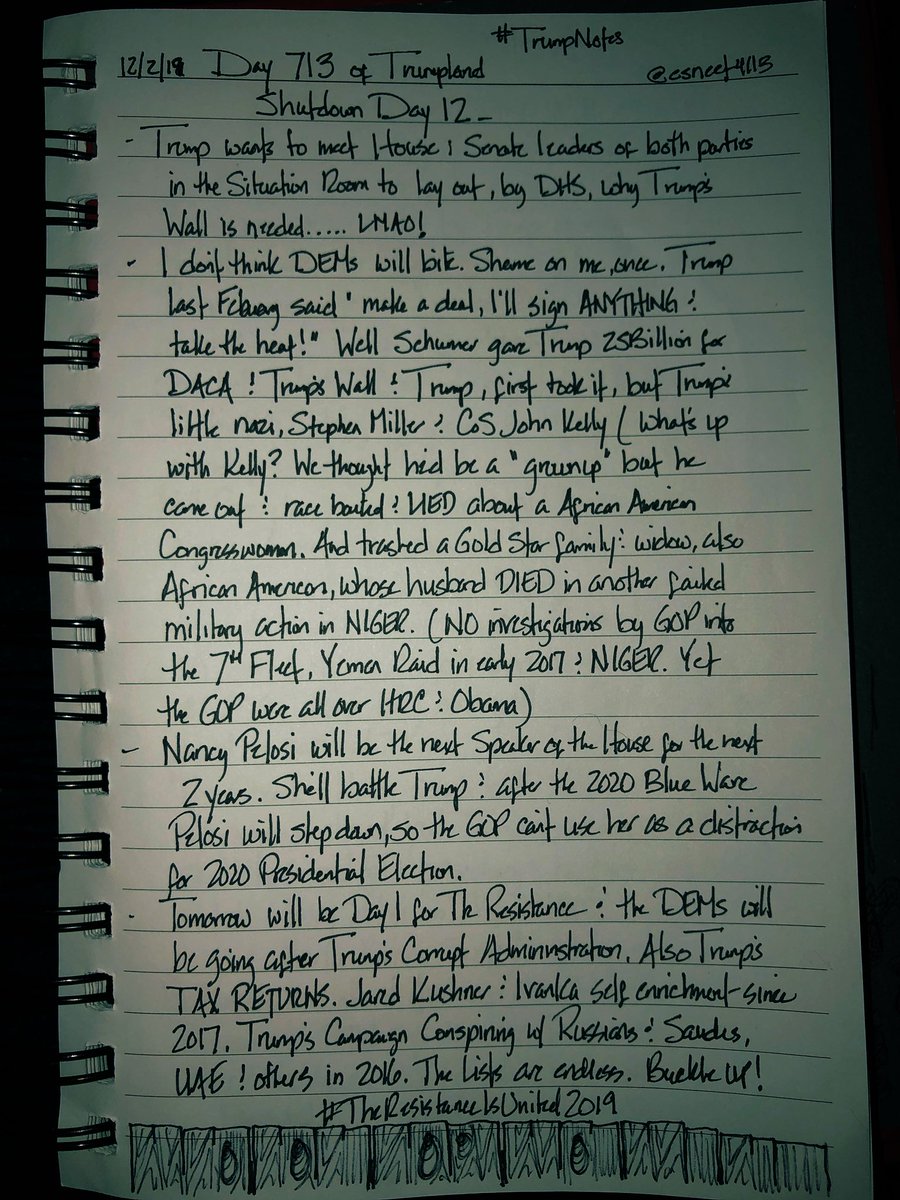 #TrumpNotes
12/2/18 Day 713 of Trumpland @csneef4113
Shutdown Day 12 -
- Trump wants to meet House & Senate leaders of both parties
in the Situation Room to lay out, by DHS, why Trump's
Wall is needed..... LMAO!
- I don't think DEMs will bite. Shame on me, once. Trump
last Febuary said "make a deal, I'll sign ANYTHING &
take the heat!" Well Schumer gave Trump 25Billion for
DACA & Trump's Wall & Trump, first took it, but Trump's
little nazi, Stephen Miller & CoS John Kelly (What's up
with Kelly? We thought he'd be a "grunup" but he
came out & race baited & LIED about a African American
Congresswoman. And trashed a Gold Star family & widow, also
African American, whose husband DIED in another failed
military action in NIGER. (NO investigations by GOP into
the 7th Fleet, Yemen Raid in early 2017 & NIGER. Yet
the GOP were all over HRC & Obama)
- Nancy Pelosi will be the next Speaker of the House for the next
2 years. She'll battle Trump & after the 2020 Blue Wave
Pelosi will step down, so the GOP can't use her as a distraction
for 2020 Presidential Election.
- Tomorrow will be Day 1 for The Resistance & the DEMs will
be going after Trump's Corrupt Admininstration. Also Trump's
TAX RETURNS. Jared Kushner & Ivanka self enrichment since
2017. Trump's Campaign Conspiring w/ Russians & Saudis,
UAE & others in 2016. The Lists are endless. Buckle up!
#TheResistanceIsUnited2019